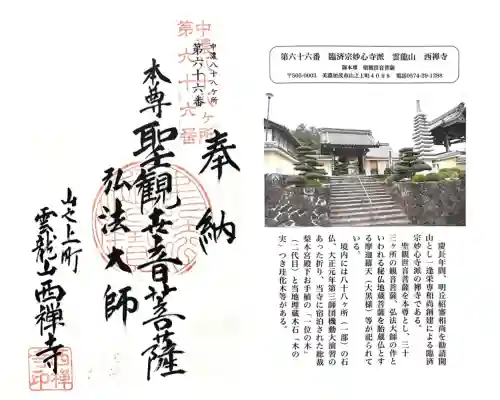 中濃八十八ヶ所
第六十六番
中濃八十八ヶ所
第六十六番
奉納
本尊聖観世音菩薩
弘法大師
山之上町
雲龍山西禅寺
西禅寺印
第六十六番 臨済宗妙心寺派 雲龍山 西禅寺
御本尊 聖観世音菩薩
美濃加茂市山之上町4088 電話0574-29-1288
慶長年間、明丘紹審和尚を勧請開
山とし、一逢栄専和尚創建による臨済
宗妙心寺派の禅寺である。
聖観世音菩薩を本尊とし、三十
三ヶ所の観音菩薩、弘法大師の作と
いわれる秘仏地蔵菩薩を胎蔵仏とす
る摩迦羅天（大黒様）等が祀られて
いる。
境内には八十八ヶ所（一部）の石
仏、大正元年第三師団機動大演習の
あった折り、当寺に宿泊された総裁
梨本宮殿下お手植の「一位の木」
（二代目）と当地埋蔵木石「木の
実」つき珪化木等がある。